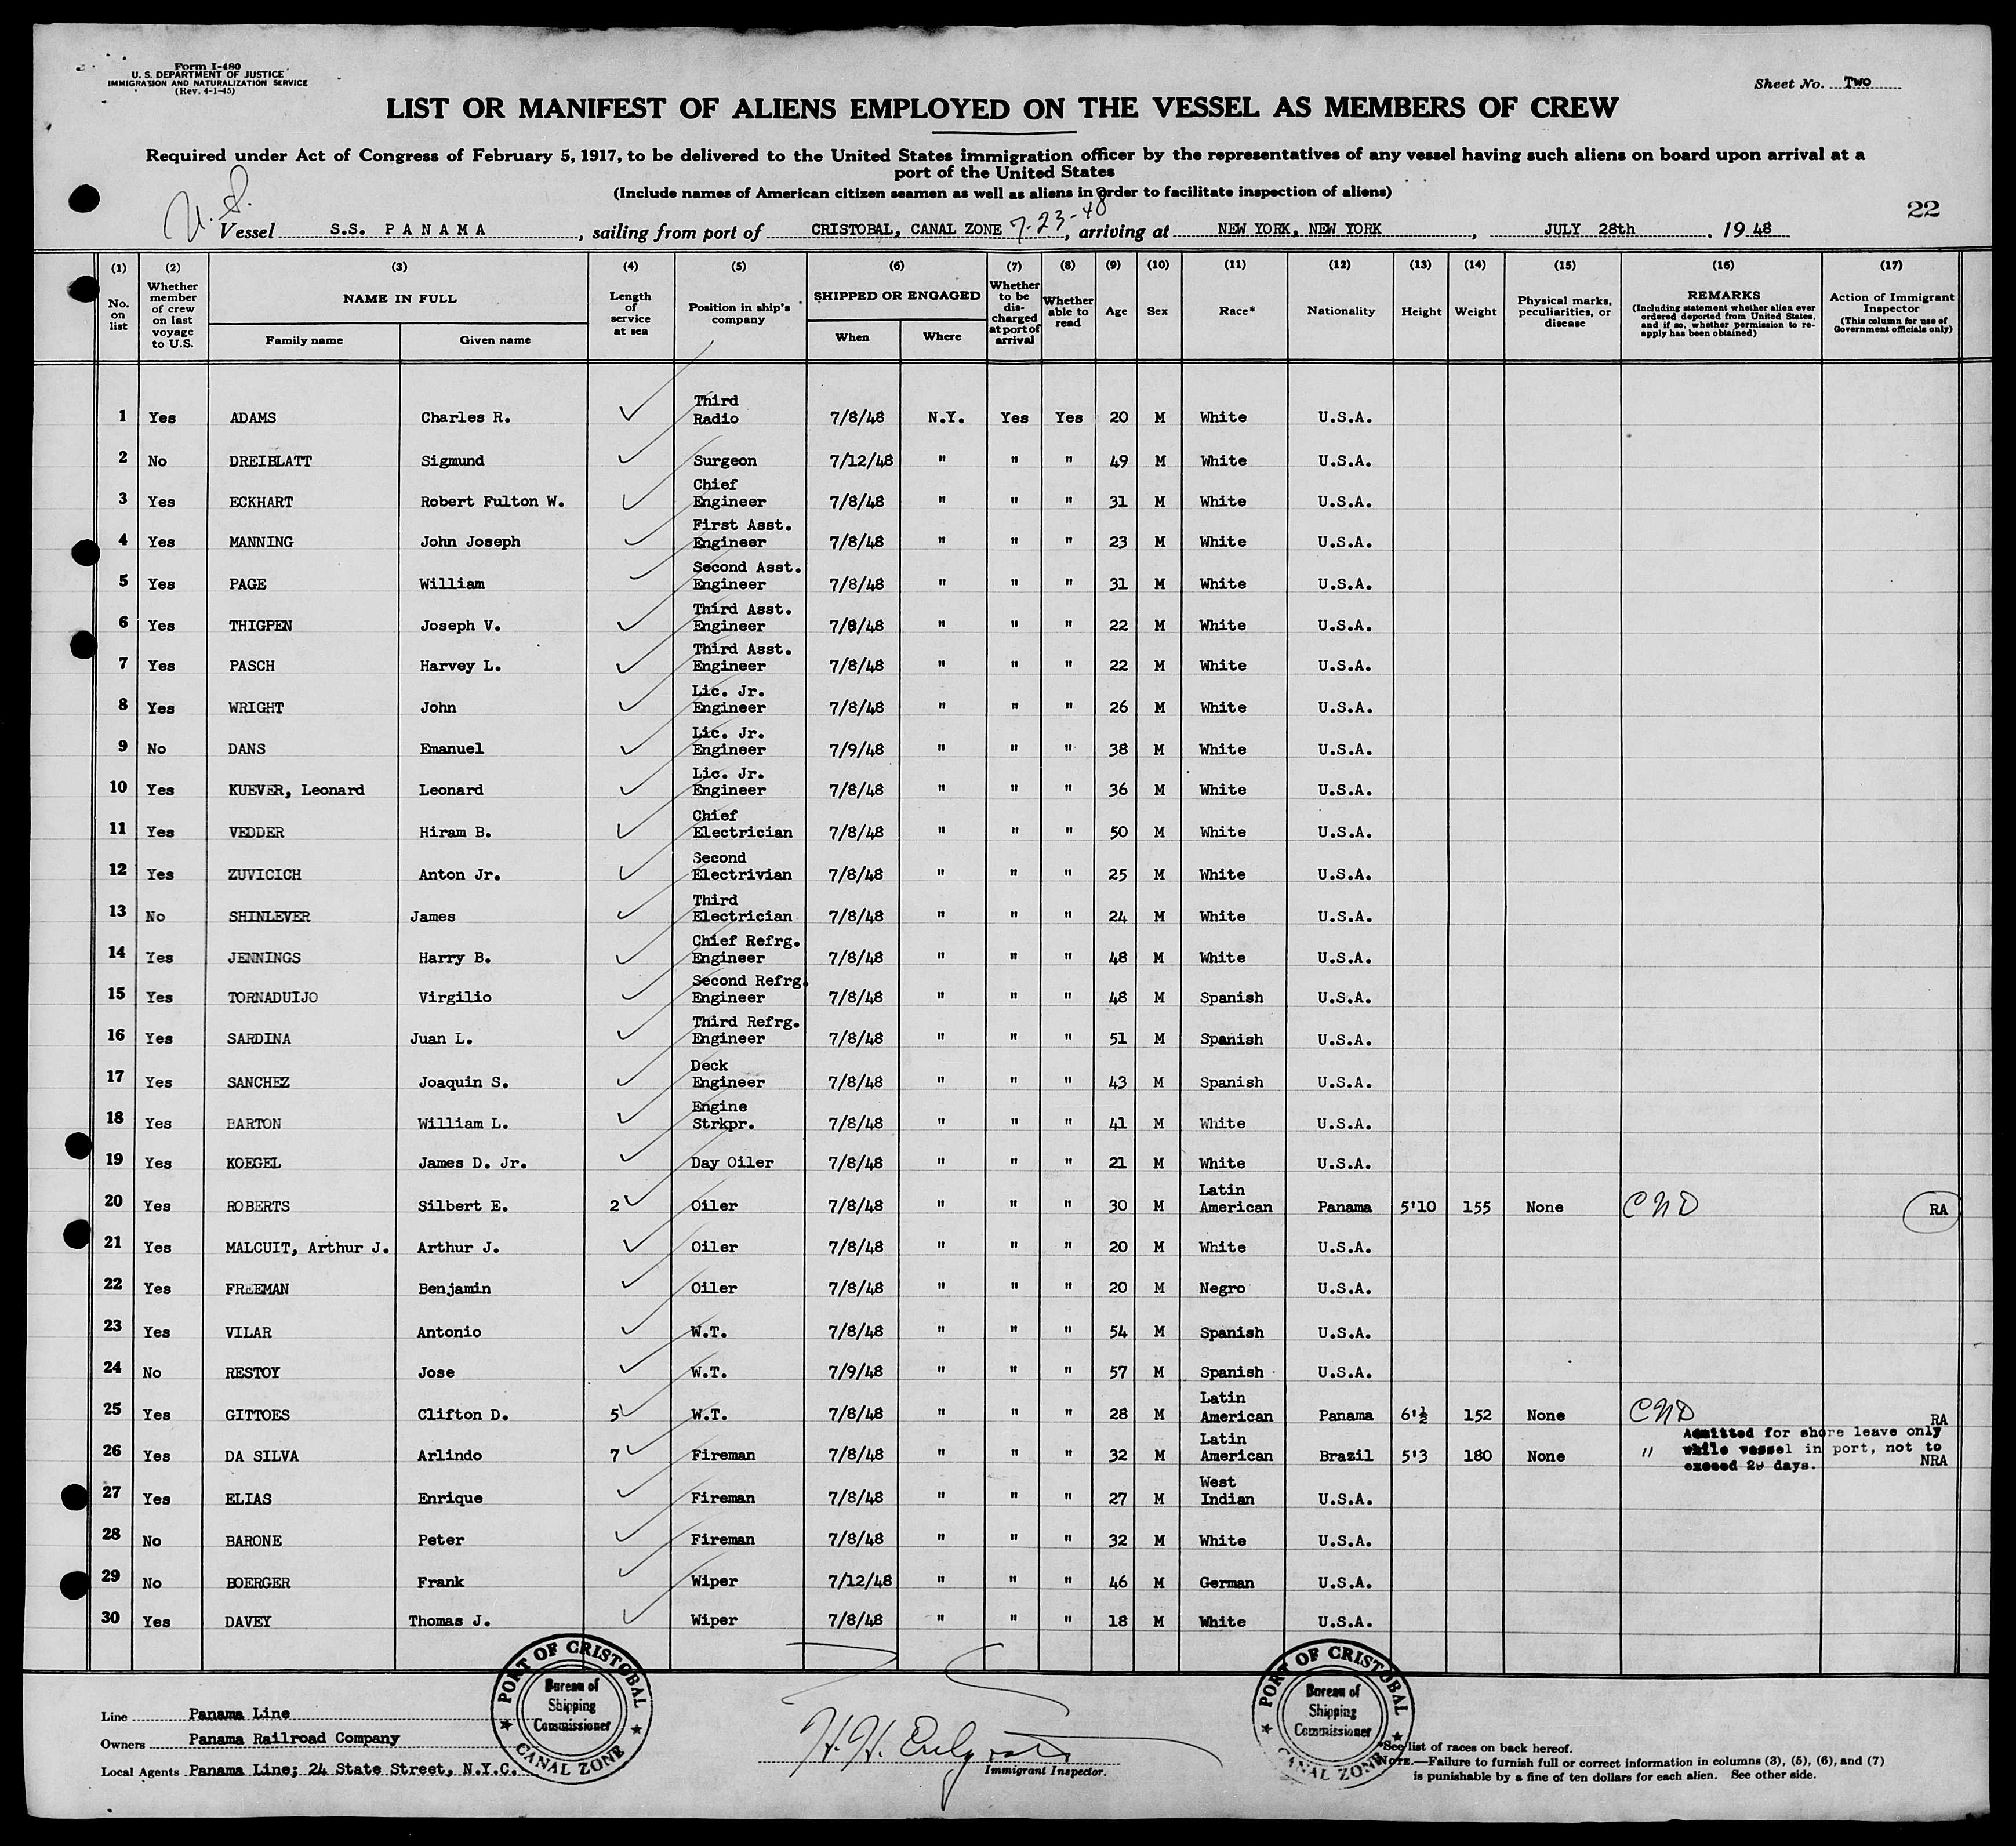 Form I-480
U. S. DEPARTMENT OF JUSTICE
IMMIGRATION AND NATURALIZATION SERVICE
(Rev. 4-1-45)
Sheet No. Two
LIST OR MANIFEST OF ALIENS EMPLOYED ON THE VESSEL AS MEMBERS OF CREW
Required under Act of Congress of February 5, 1917, to be delivered to the United States immigration officer by the representatives of any vessel having such aliens on board upon arrival at a
port of the United States
(Include names of American citizen seamen as well as aliens in order to facilitate inspection of aliens)
22
U. S.
Vessel S.S. PANAMA, sailing from port of CRISTOBAL, CANAL ZONE 7-23-48, arriving at NEW YORK, NEW YORK, JULY 28th, 1948
(1) (2) (3) (4) (5) (6) (7) (8) (9) (10) (11) (12) (13) (14) (15) (16) (17)
No. on list
Whether member of crew on last voyage to U.S.
NAME IN FULL
Family name Given name
Length of service at sea
Position in ship's company
SHIPPED OR ENGAGED
When Where
Whether to be discharged at port of arrival
Whether able to read
Age Sex Race* Nationality Height Weight
Physical marks, peculiarities, or disease
REMARKS
(Including statement whether alien ever ordered deported from United States, and if so, whether permission to reapply has been obtained)
Action of Immigrant Inspector
(This column for use of Government officials only)
1 Yes ADAMS Charles R. Third Radio 7/8/48 N.Y. Yes Yes 20 M White U.S.A.
2 No DREIBLATT Sigmund Surgeon 7/12/48 " " " 49 M White U.S.A.
3 Yes ECKHART Robert Fulton W. Chief Engineer 7/8/48 " " " 31 M White U.S.A.
4 Yes MANNING John Joseph First Asst. Engineer 7/8/48 " " " 23 M White U.S.A.
5 Yes PAGE William Second Asst. Engineer 7/8/48 " " " 31 M White U.S.A.
6 Yes THIGPEN Joseph V. Third Asst. Engineer 7/8/48 " " " 22 M White U.S.A.
7 Yes PASCH Harvey L. Third Asst. Engineer 7/8/48 " " " 22 M White U.S.A.
8 Yes WRIGHT John Lic. Jr. Engineer 7/8/48 " " " 26 M White U.S.A.
9 No DANS Emanuel Lic. Jr. Engineer 7/9/48 " " " 38 M White U.S.A.
10 Yes KUEVER, Leonard Leonard Lic. Jr. Engineer 7/8/48 " " " 36 M White U.S.A.
11 Yes VEDDER Hiram B. Chief Electrician 7/8/48 " " " 50 M White U.S.A.
12 Yes ZUVICICH Anton Jr. Second Electrivian 7/8/48 " " " 25 M White U.S.A.
13 No SHINLEVER James Third Electrician 7/8/48 " " " 24 M White U.S.A.
14 Yes JENNINGS Harry B. Chief Refrg. Engineer 7/8/48 " " " 48 M White U.S.A.
15 Yes TORNADUIJO Virgilio Second Refrg. Engineer 7/8/48 " " " 48 M Spanish U.S.A.
16 Yes SARDINA Juan L. Third Refrg. Engineer 7/8/48 " " " 51 M Spanish U.S.A.
17 Yes SANCHEZ Joaquin S. Deck Engineer 7/8/48 " " " 43 M Spanish U.S.A.
18 Yes BARTON William L. Engine Strkpr. 7/8/48 " " " 41 M White U.S.A.
19 Yes KOEGEL James D. Jr. Day Oiler 7/8/48 " " " 21 M White U.S.A.
20 Yes ROBERTS Silbert E. 2 Oiler 7/8/48 " " " 30 M Latin American Panama 5'10 155 None CND RA
21 Yes MALCUIT, Arthur J. Arthur J. Oiler 7/8/48 " " " 20 M White U.S.A.
22 Yes FREEMAN Benjamin Oiler 7/8/48 " " " 20 M Negro U.S.A.
23 Yes VILAR Antonio W.T. 7/8/48 " " " 54 M Spanish U.S.A.
24 No RESTOY Jose W.T. 7/9/48 " " " 57 M Spanish U.S.A.
25 Yes GITTOES Clifton D. 5 W.T. 7/8/48 " " " 28 M Latin American Panama 6'½ 152 None CND RA
26 Yes DA SILVA Arlindo 7 Fireman 7/8/48 " " " 32 M Latin American Brazil 5'3 180 None " Admitted for shore leave only while vessel in port, not to exceed 29 days. NRA
27 Yes ELIAS Enrique Fireman 7/8/48 " " " 27 M West Indian U.S.A.
28 No BARONE Peter Fireman 7/8/48 " " " 32 M White U.S.A.
29 No BOERGER Frank Wiper 7/12/48 " " " 46 M German U.S.A.
30 Yes DAVEY Thomas J. Wiper 7/8/48 " " " 18 M White U.S.A.
Line Panama Line
Owners Panama Railroad Company
Local Agents Panama Line; 24 State Street, N.Y.C.
PORT OF CRISTOBAL
Bureau of
Shipping
Commissioner
CANAL ZONE
H. H.
Immigrant Inspector.
PORT OF CRISTOBAL
Bureau of
Shipping
Commissioner
CANAL ZONE
*See list of races on back hereof.
NOTE.—Failure to furnish full or correct information in columns (3), (5), (6), and (7)
is punishable by a fine of ten dollars for each alien. See other side.